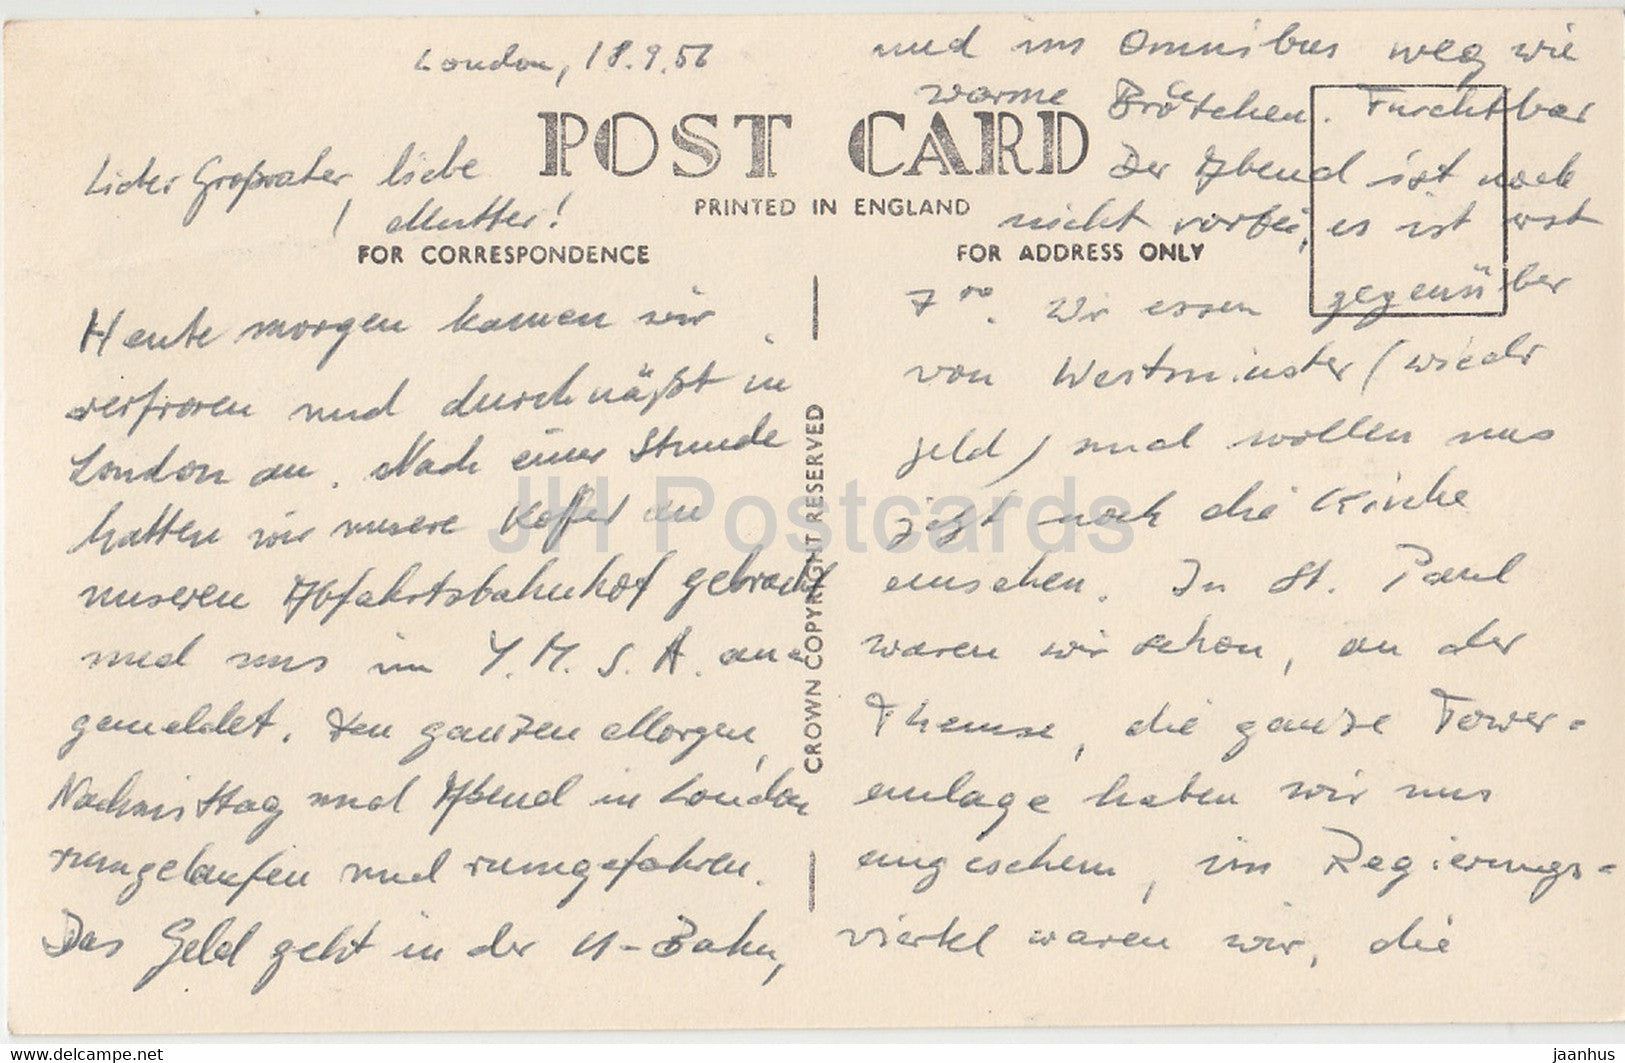 London, 18.9.56
Lieber Großvater, liebe
Mutter!
POST CARD
PRINTED IN ENGLAND
FOR CORRESPONDENCE
FOR ADDRESS ONLY
CROWN COPYRIGHT RESERVED
Heute morgen kamen wir
verfroren und durchnäßt in
London an. Nach einer Stunde
hatten wir unsere Koffer in
unseren Abfahrtsbahnhof gebracht
und uns im Y.M.S.A. an-
gemeldet. Den ganzen Morgen,
Nachmittag und Abend in London
rumgelaufen und rumgefahren.
Das Geld geht in der U-Bahn,
und im Omnibus weg wie
warme Brötchen. Furchtbar
Der Abend ist noch
nicht vorbei, es ist erst
7°°. Wir essen gegenüber
von Westminster (wieder
Geld) und wollen uns
jetzt noch die Kirche
ansehen. In St. Paul
waren wir schon, an der
Themse, die ganze Tower-
anlage haben wir uns
angesehen, im Regierungs-
viertel waren wir, die
JH Postcards
www.delcampe.net
jaanhus